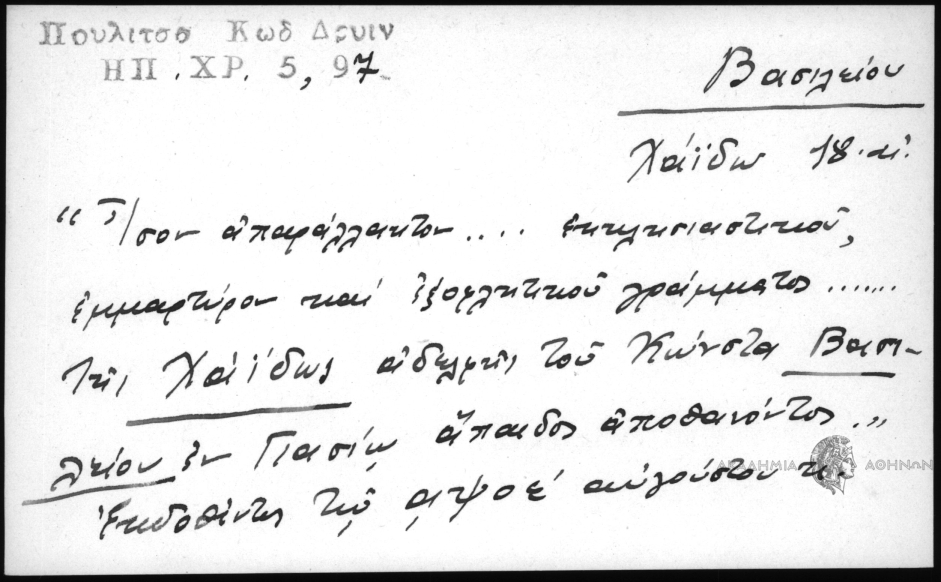 Πουλιτσα Κωδ Δρυιν
ΗΠ. ΧΡ. 5, 97
Βασιλείου
Χάϊδω 18. αἰ.
"Ἴσον ἀπαράλλακτον .... ἐκκλησιαστικοῦ,
ἐμμαρτύρου καί ἐξοφλητικοῦ γράμματος .......
τῆς Χάϊδως ἀδελφῆς τοῦ Κώνστα Βασι-
λείου ἐν Γιασίῳ ἄπαιδος ἀποθανόντος..,
ἐκδοθέντος τῷ αψοε΄ αὐγούστου
ΑΚΑΔΗΜΙΑ ΑΘΗΝΩΝ